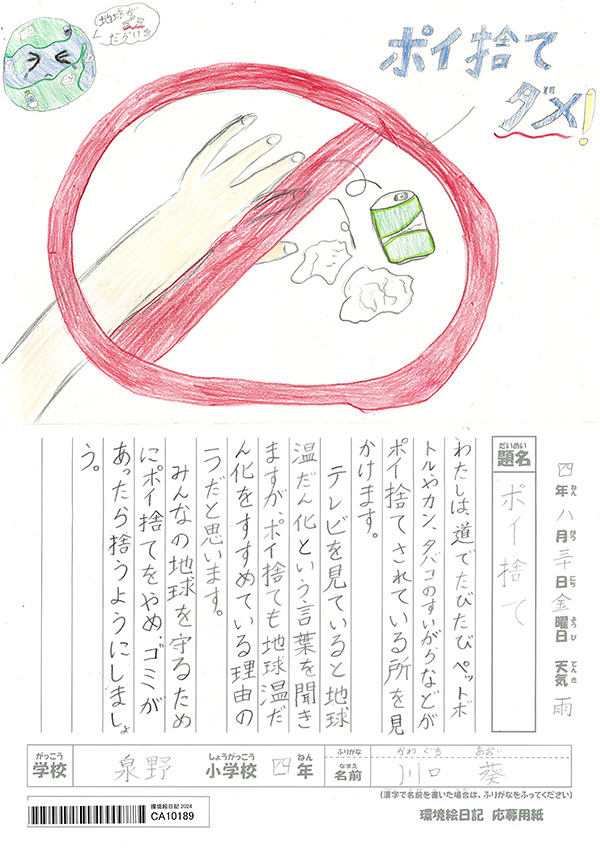 地球が
だからき
ポイ捨て
ダメ!
四年八月三十日金曜日 天気 雨
ねん がつ にち ようび てんき
だいめい
題名
ポイ捨て
わたしは、道でたびたびペットボ
トルやカン、タバコのすいがらなどが
ポイ捨てされている所を見
かけます。
テレビを見ていると地球
温だん化という言葉を聞き
ますが、ポイ捨ても地球温だ
ん化をすすめている理由の
一つだと思います。
みんなの地球を守るため
にポイ捨てをやめ、ゴミが
あったら捨うようにしましょ
う。
がっこう しょうがっこう ねん ふりがな かわぐち あおい
学校 泉野 小学校 四年 なまえ 名前 川口 葵
(漢字で名前を書いた場合は、ふりがなをふってください)
環境絵日記 2024
CA10189
環境絵日記 応募用紙